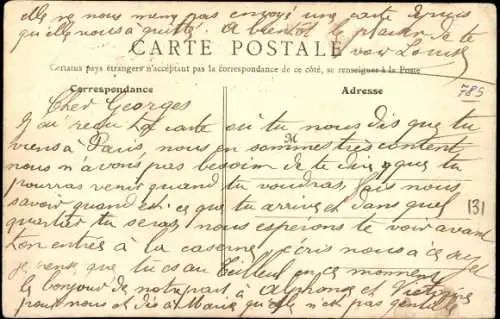 elle ne nous meme pas envoyé une carte depuis
qu'elle nous a quitté. A bientot le plaisir de te
voir Louise
CARTE POSTALE
Certains pays étrangers n'acceptant pas la correspondance de ce côté, se renseigner à la Poste
Correspondance
Adresse
785
Cher Georges
J'ai recu ta carte ou tu nous dis que tu
M
viens à Paris, nous en sommes très content
nous n'avons pas besoin de te dire que tu
pourras venir quand tu voudras, fais nous
savoir quand est ce que tu arrive et dans quel
131
quartier tu seras nous esperons te voir avant
ton entrée à la caserne, écris nous à ce sujet
je pense que tu es au Teilleul en ce moment
le bonjour de notre part à Alphonse et Victorine
pour nous et dis à Marie qu'elle n'est pas gentille